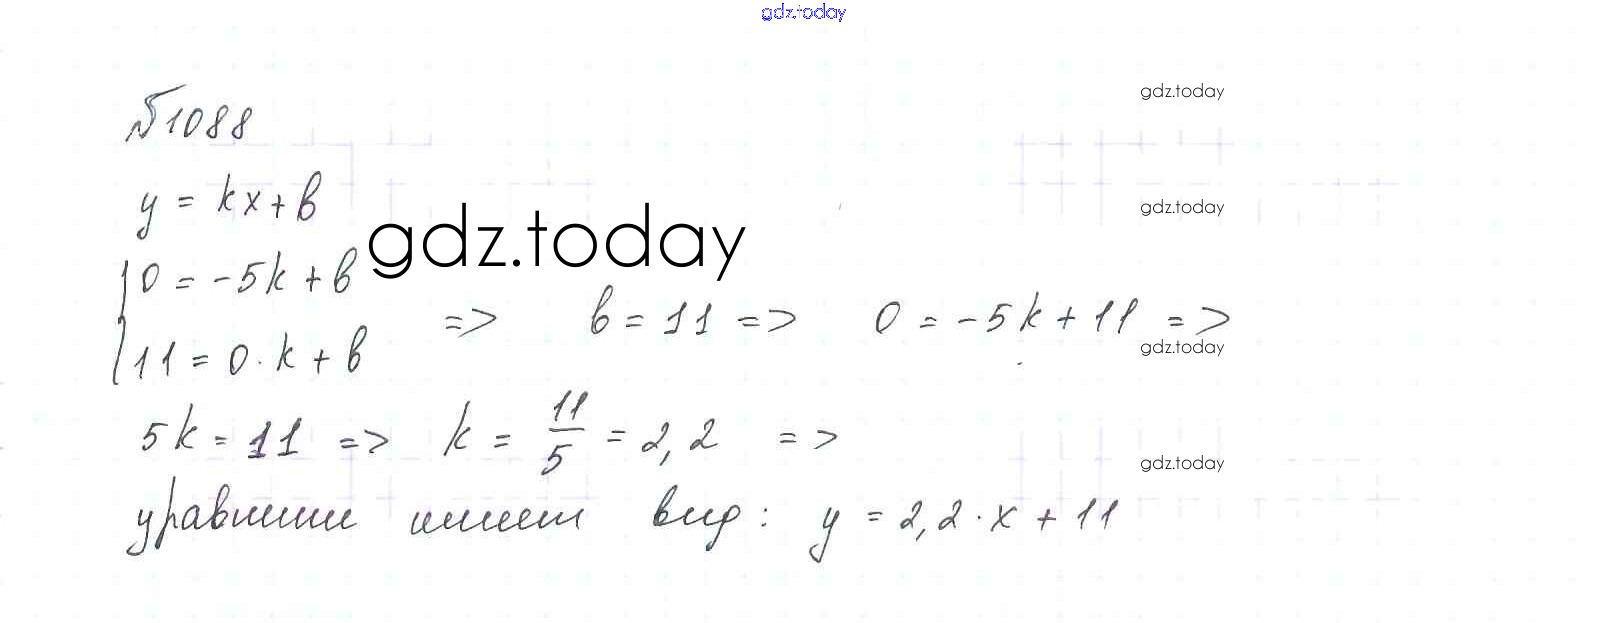 gdz.today
№1088
gdz.today
y = kx + b
gdz.today
gdz.today
0 = -5k + b
11 = 0 · k + b
=> b = 11 => 0 = -5k + 11 =>
gdz.today
5k = 11 => k = 11/5 = 2,2 =>
gdz.today
уравнение имеет вид: y = 2,2 · x + 11